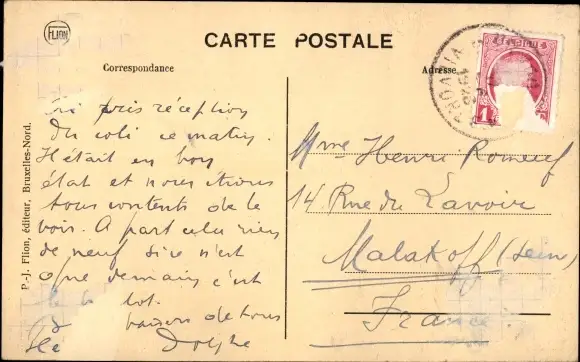 FLION
CARTE POSTALE
Correspondance
Adresse
P.-J. Flion, éditeur, Bruxelles-Nord.
pris réception
du coli ce matin.
Il était en bon
état et nous étions
tous contents de le
voir. A part cela rien
de neuf si ce n'est
que demain c'est
le lot.
baisers de tous
Mme Henri Romeuf
14 Rue du Lavoir
Malakoff (Sein)
France.